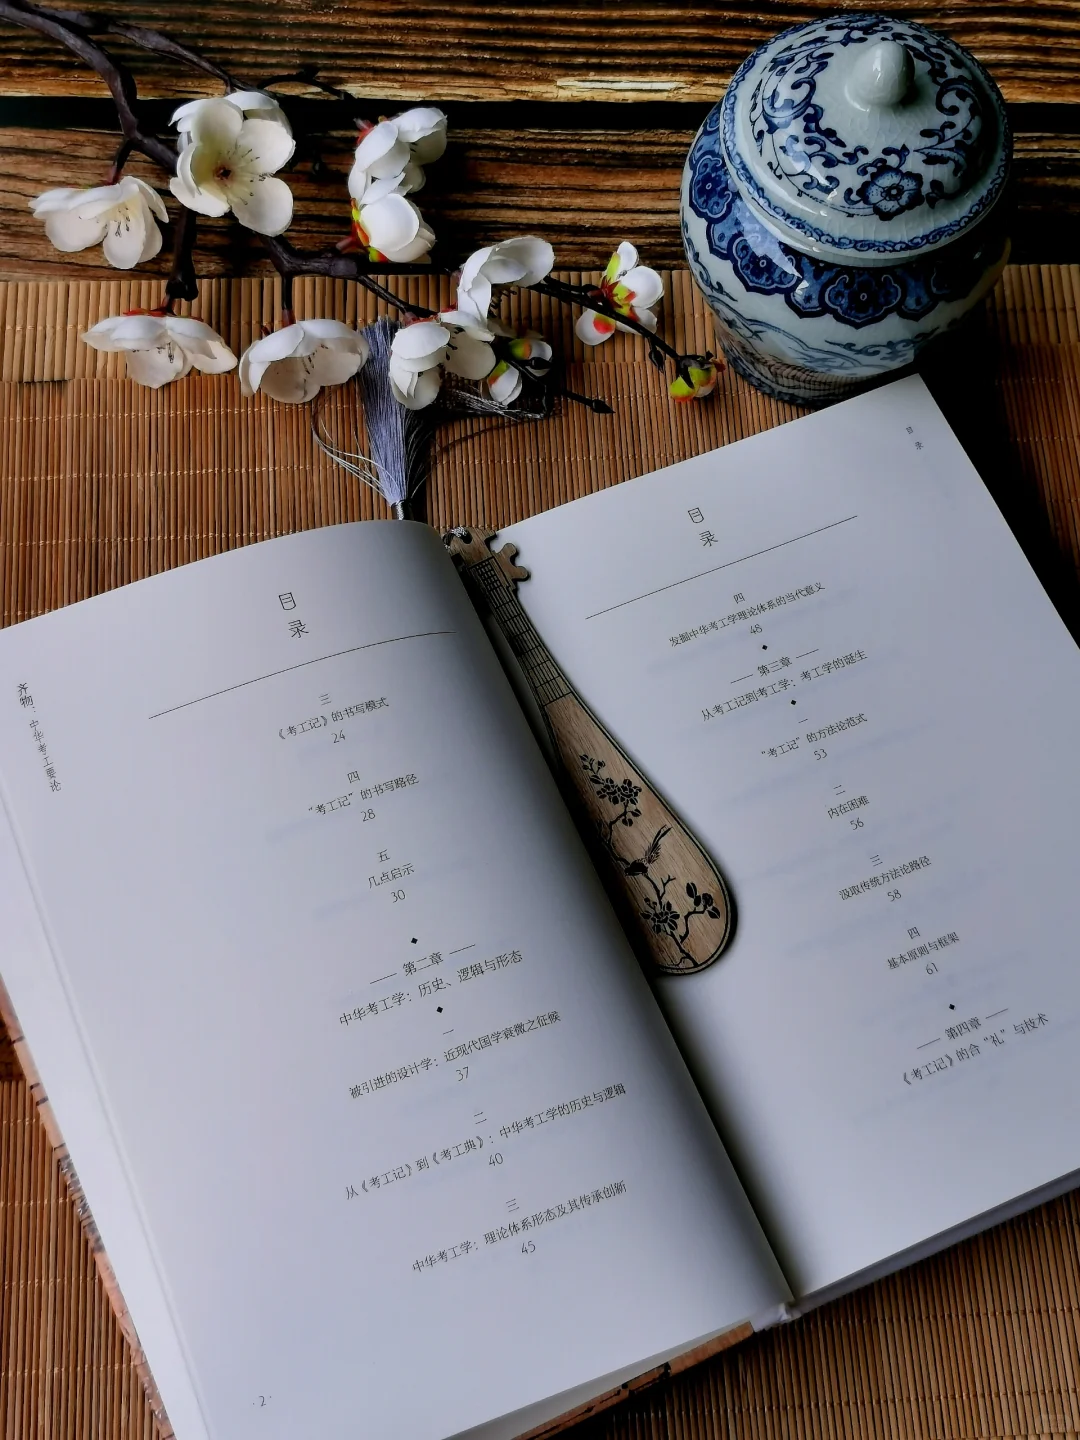 齐物：中华考工要论
目录
三
《考工记》的书写模式
24
四
“考工记”的书写路径
28
五
几点启示
30
第二章
中华考工学：历史、逻辑与形态
一
被引进的设计学：近现代国学衰微之征候
37
二
从《考工记》到《考工典》：中华考工学的历史与逻辑
40
三
中华考工学：理论体系形态及其传承创新
45
·2·
目录
目录
四
发掘中华考工学理论体系的当代意义
48
第三章
从考工记到考工学：考工学的诞生
一
“考工记”的方法论范式
53
二
内在困难
56
三
汲取传统方法论路径
58
四
基本原则与框架
61
第四章
《考工记》的合“礼”与技术